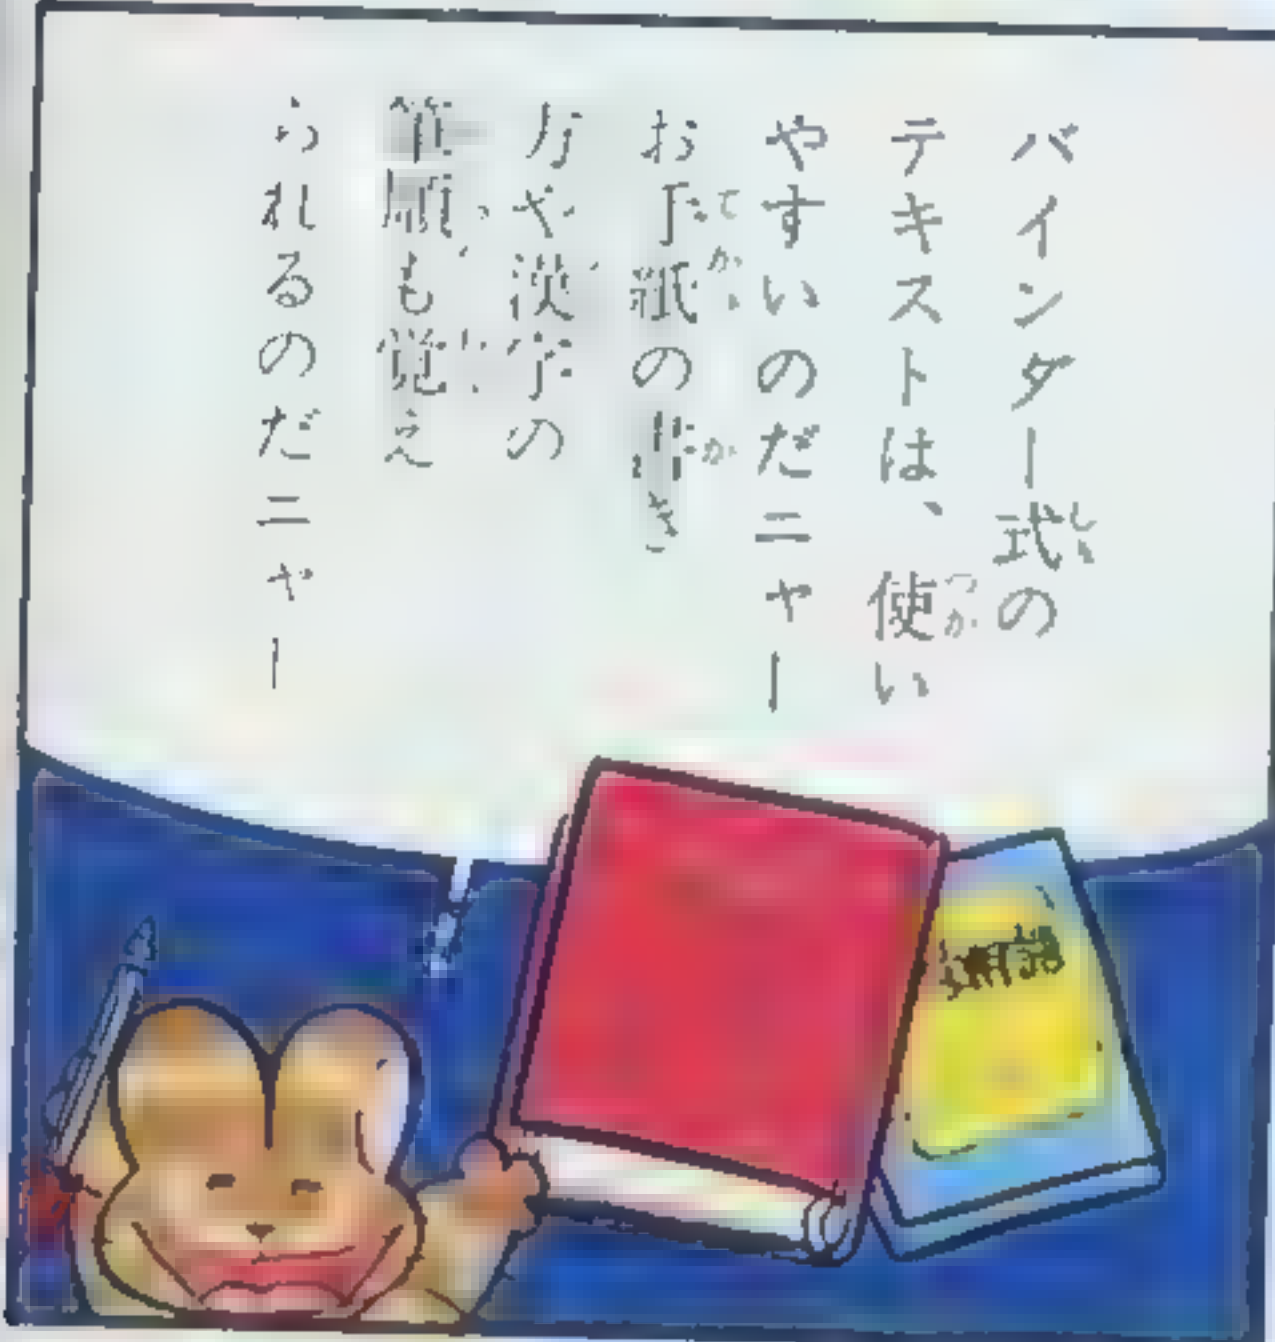 バインダー式の
テキストは、使い
やすいのだニャー
お手紙の書き
方や漢字の
筆順も覚え
られるのだニャー
しき
つか
てがみ
か